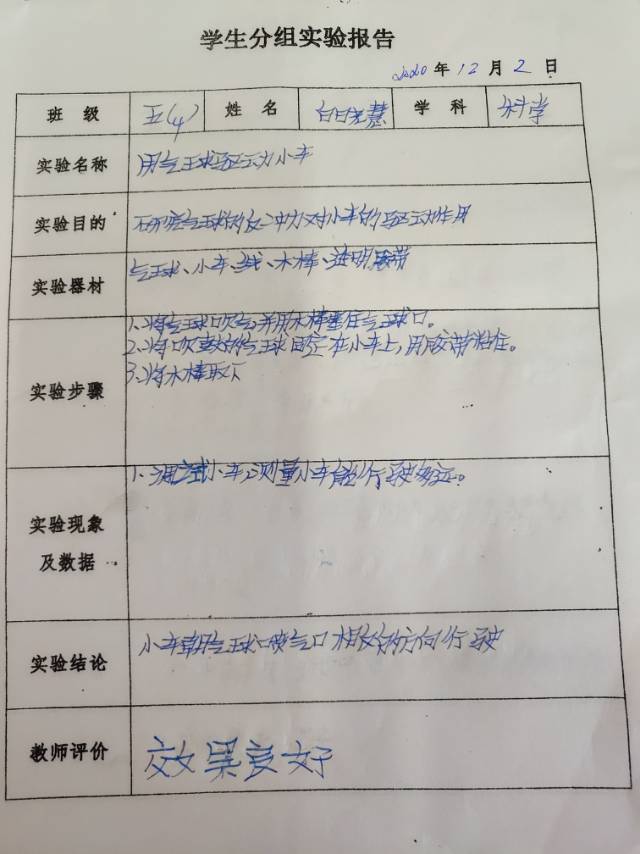 学生分组实验报告
2020年12月2日
班 级 五(4) 姓 名 学 科 科学
实验名称 用气球驱动小车
实验目的 研究气球的反冲力对小车的驱动作用
实验器材 气球、小车、线、木棒、透明胶带
1、将气球口吹气并用木棒塞住气球口。
2、将吹好的气球固定在小车上,用胶带粘住。
实验步骤
3、将木棒取下
1、调试小车,测量小车能行驶多远。
实验现象
及数据
实验结论 小车朝气球喷气口相反的方向行驶
教师评价 效果良好